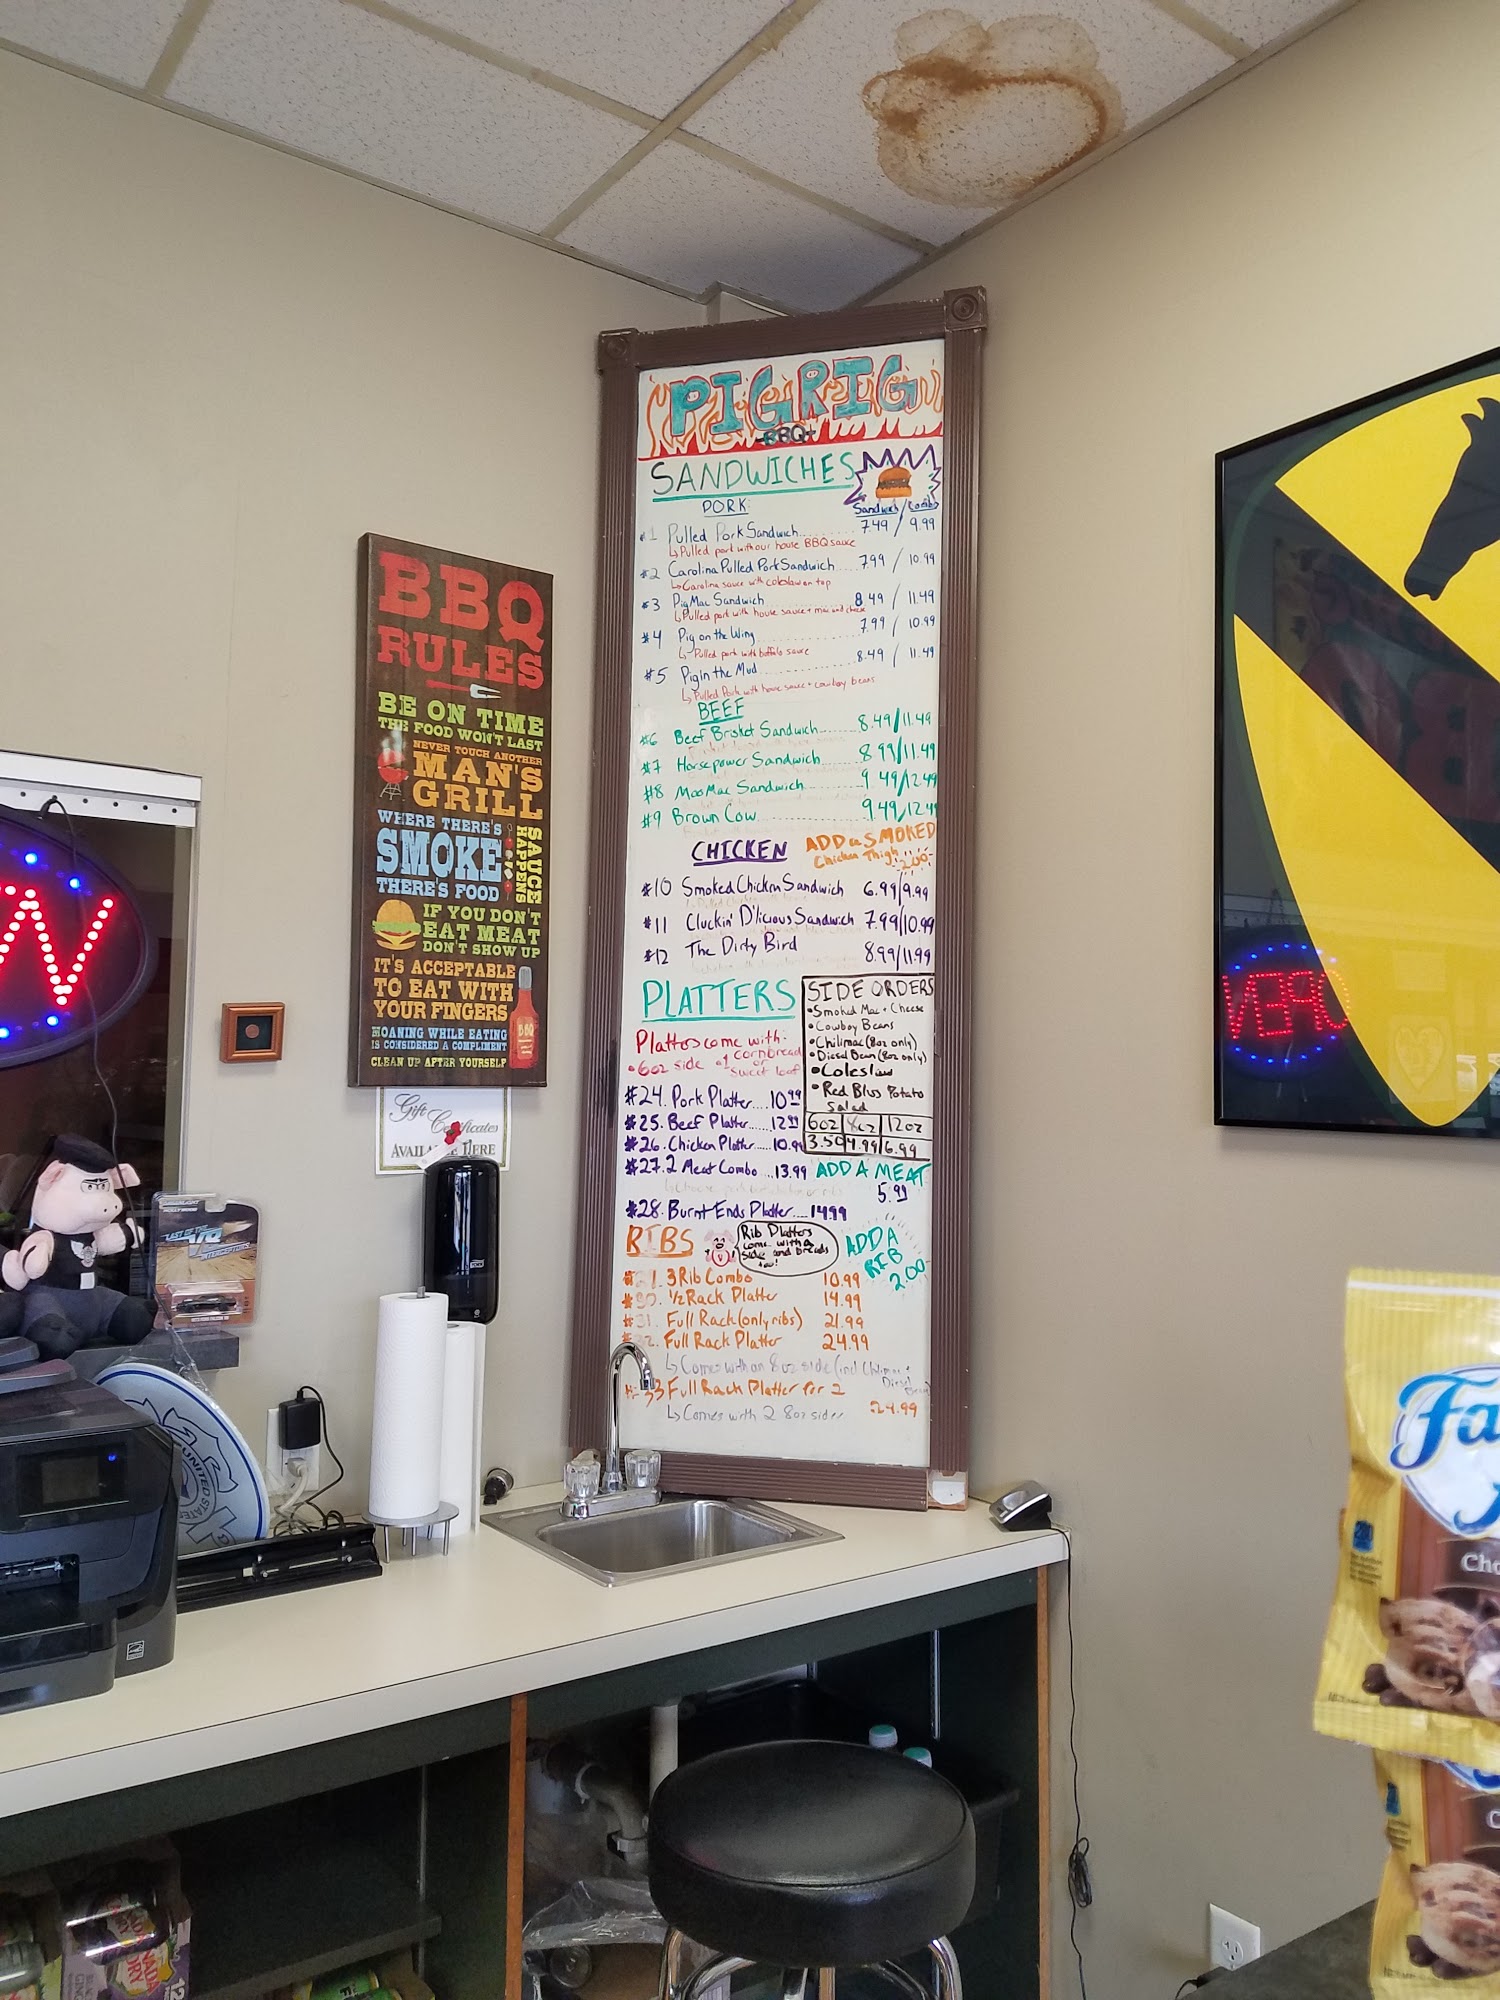 PIG RIG
BBQ
SANDWICHES
PORK
Sandwich / Combo
#1 Pulled Pork Sandwich 7.49 / 9.99
↳ Pulled pork with our house BBQ sauce
#2 Carolina Pulled Pork Sandwich..... 7.99 / 10.99
↳ Carolina sauce with coleslaw on top
#3 PigMac Sandwich 8.49 / 11.49
↳ Pulled pork with house sauce + mac and cheese
#4 Pig on the Wing 7.99 / 10.99
↳ Pulled pork with buffalo sauce
#5 Pig in the Mud 8.49 / 11.49
↳ Pulled Pork with house sauce + cowboy beans
BEEF
#6 Beef Brisket Sandwich 8.49/11.49
#7 Horsepower Sandwich 8.99/11.49
#8 Moo Mac Sandwich 9.49/12.49
#9 Brown Cow 9.49/12.49
CHICKEN
ADD a SMOKED
Chicken Thigh 2.00
#10 Smoked Chicken Sandwich 6.99/9.99
#11 Cluckin' D'licious Sandwich 7.99/10.99
#12 The Dirty Bird 8.99/11.99
PLATTERS
Platters come with:
• 6oz side • 1 cornbread
or
sweet loaf
#24. Pork Platter.... 10.99
#25. Beef Platter..... 12.99
#26. Chicken Platter.... 10.99
#27. 2 Meat Combo... 13.99
#28. Burnt Ends Platter.... 14.99
SIDE ORDERS
• Smoked Mac + Cheese
• Cowboy Beans
• Chilimac (8oz only)
• Diesel Bean (8oz only)
• Coleslaw
• Red Bliss Potato
Salad
6oz 8oz 12oz
3.50 4.99 6.99
ADD A MEAT
5.99
RIBS
Rib Platters
come with a
side and breads
too!
ADD A
RIB
2.00
3 Rib Combo 10.99
1/2 Rack Platter 14.99
Full Rack (only ribs) 21.99
Full Rack Platter 24.99
↳ Comes with an 8oz side (incl Chilimac +
Diesel Bean)
33 Full Rack Platter for 2 29.99
↳ Comes with 2 8oz sides
BBQ
RULES
BE ON TIME
THE FOOD WON'T LAST
NEVER TOUCH ANOTHER
MAN'S
GRILL
WHERE THERE'S
SMOKE
THERE'S FOOD
SAUCE
HAPPENS
IF YOU DON'T
EAT MEAT
DON'T SHOW UP
IT'S ACCEPTABLE
TO EAT WITH
YOUR FINGERS
BBQ
MOANING WHILE EATING
IS CONSIDERED A COMPLIMENT
CLEAN UP AFTER YOURSELF
Gift
Certificates
AVAILABLE HERE
LAST OF THE
V8
INTERCEPTORS
UNITED STATES
OPEN
Fa
Cho